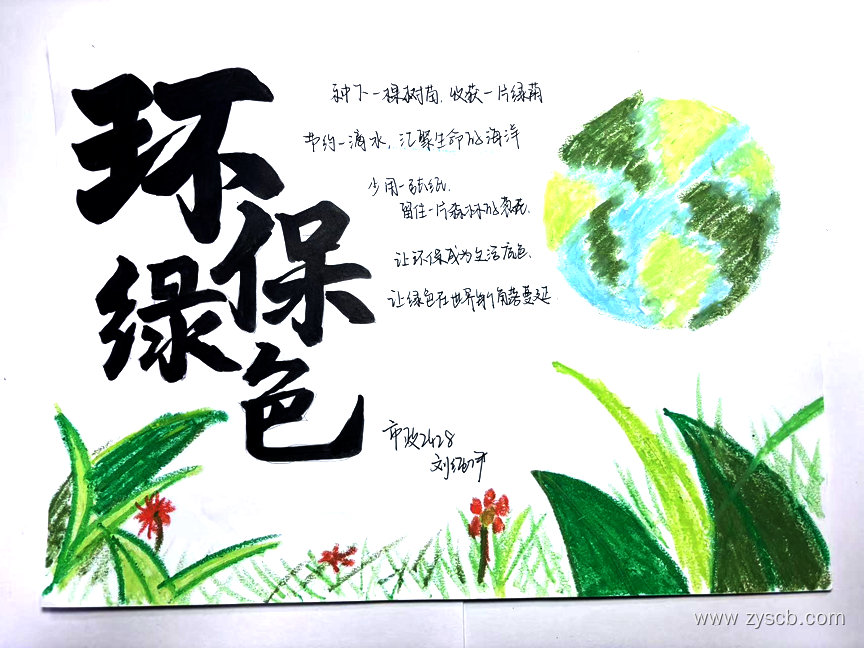 环保
绿色
种下一棵树苗，收获一片绿荫
节约一滴水，汇聚生命的海洋
少用一张纸，
留住一片森林的葱茏.
让环保成为生活底色，
让绿色在世界的角落蔓延
市政2428
刘
www.zyscb.com